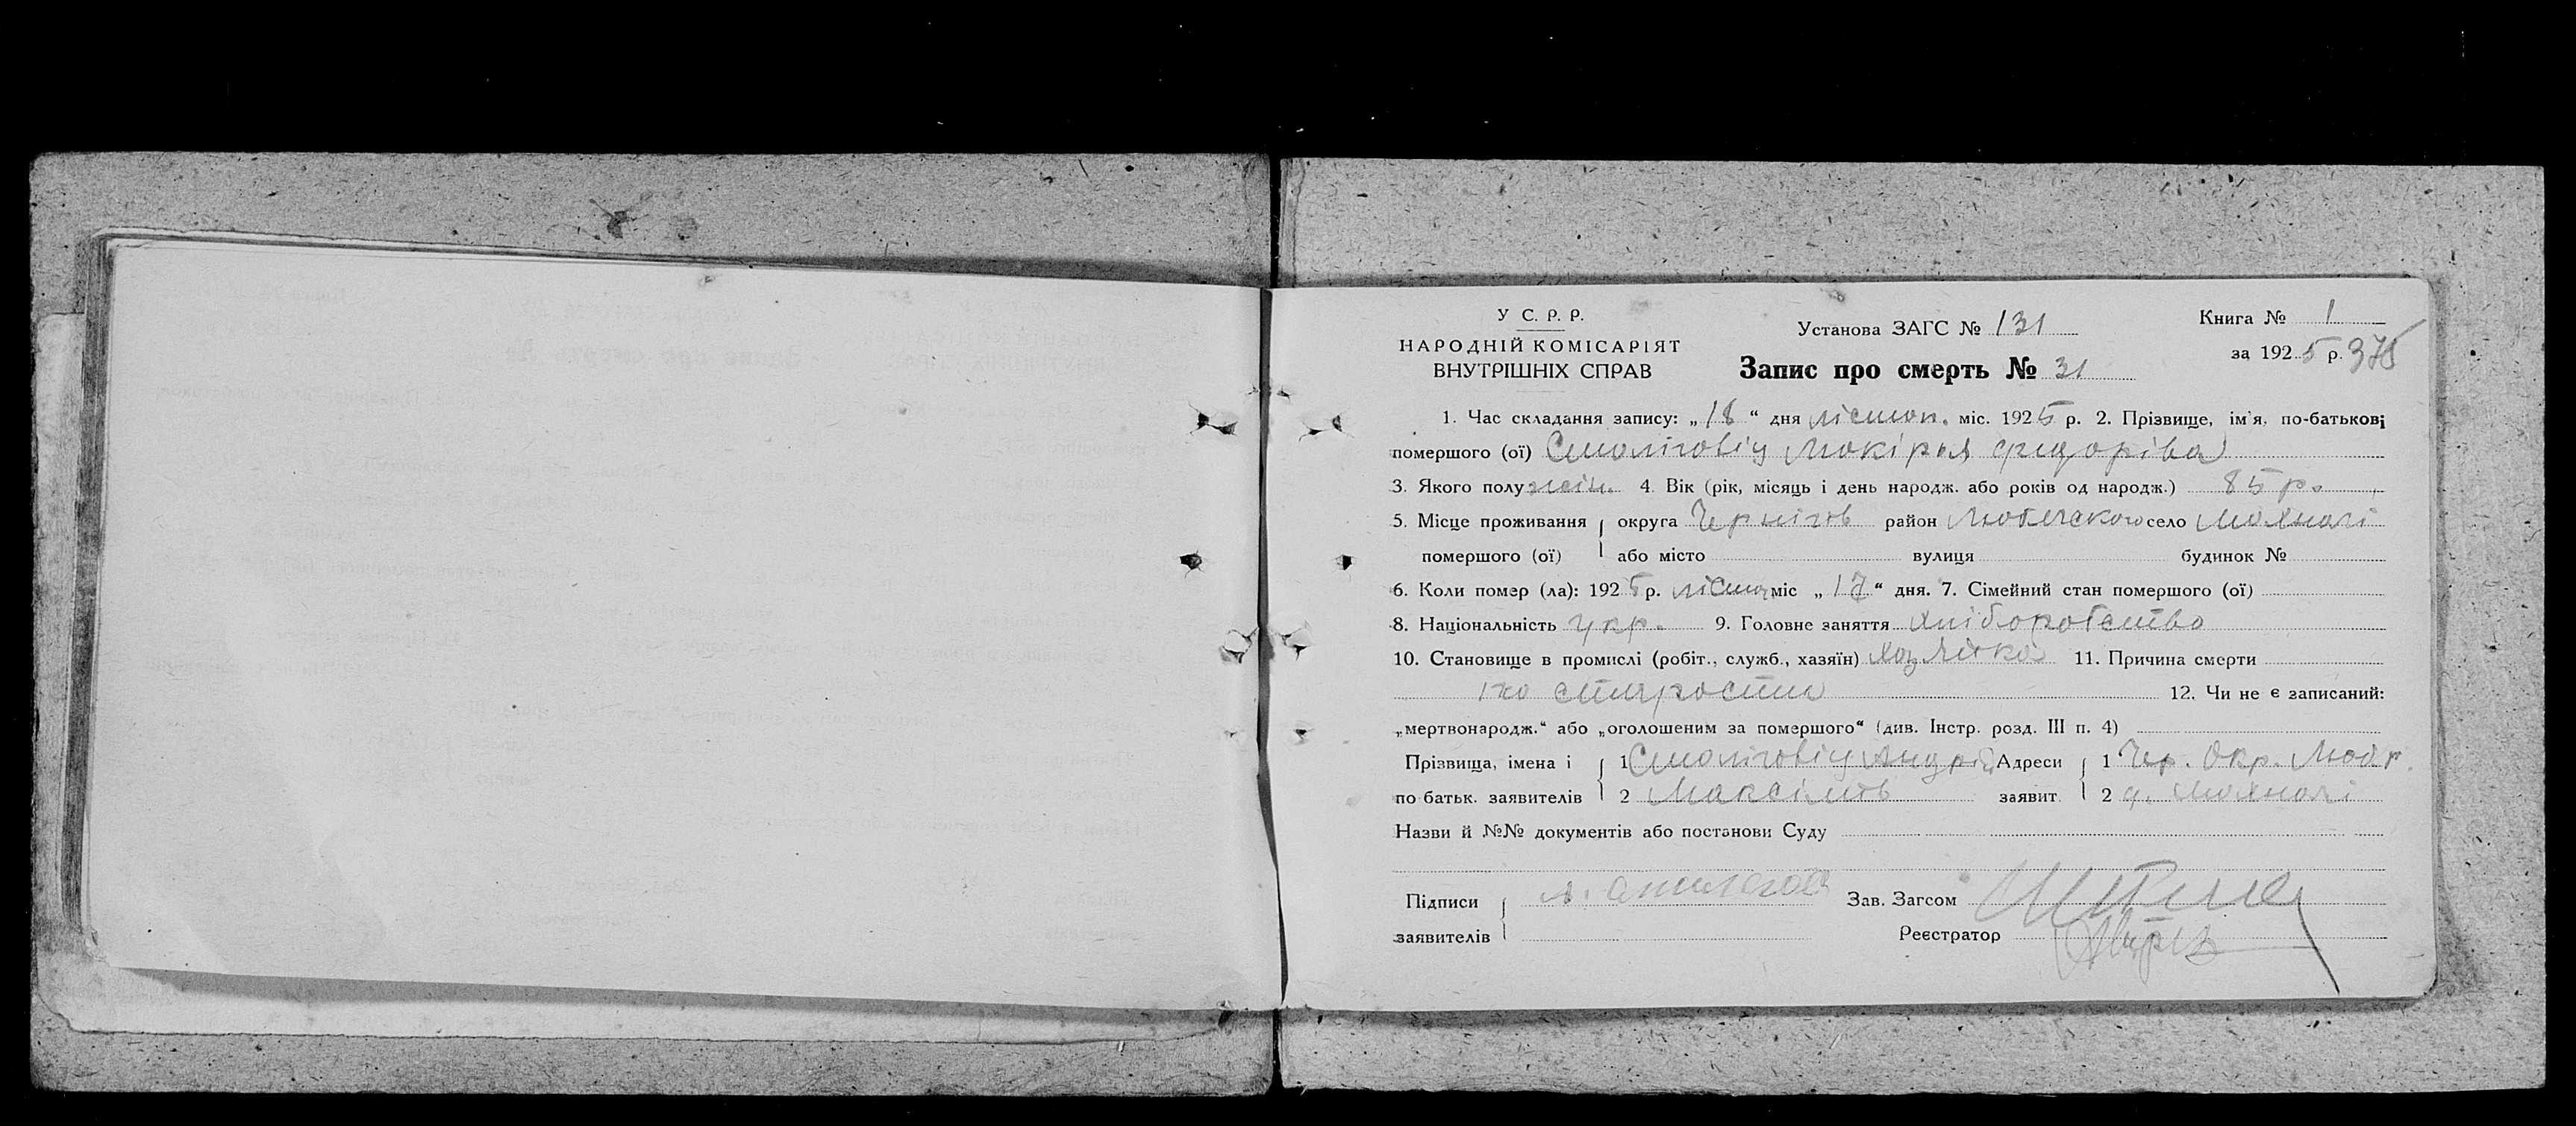 У С. Р. Р.
НАРОДНІЙ КОМІСАРІЯТ
ВНУТРІШНІХ СПРАВ
Установа ЗАГС № 131
Запис про смерть № 31
Книга № 1
за 1925 р. 375
1. Час складання запису: „18“ дня лістоп. міс. 1925 р. 2. Прізвище, ім'я, по-батькові
помершого (ої) Смоліговіц Мокірья
3. Якого полу жін. 4. Вік (рік, місяць і день народж. або років од народж.) 85 р.
5. Місце проживання округа Чернігов район Любечского село Мохначі
помершого (ої) або місто вулиця будинок №
6. Коли помер (ла): 1925 р. міс „17“ дня. 7. Сімейний стан помершого (ої)
8. Національність укр. 9. Головне заняття хліборобство
10. Становище в промислі (робіт., служб., хазяїн) 11. Причина смерти
по старости 12. Чи не є записаний:
„мертвонародж.“ або „оголошеним за помершого“ (див. Інстр. розд. III п. 4)
Прізвища, імена і 1 Смоліговіц Андрій Адреси 1 Чер. Окр. Люб р.
по батьк. заявителів 2 Максімов заявит. 2 Мохначі
Назви й №№ документів або постанови Суду
Підписи Зав. Загсом
заявителів Реєстратор